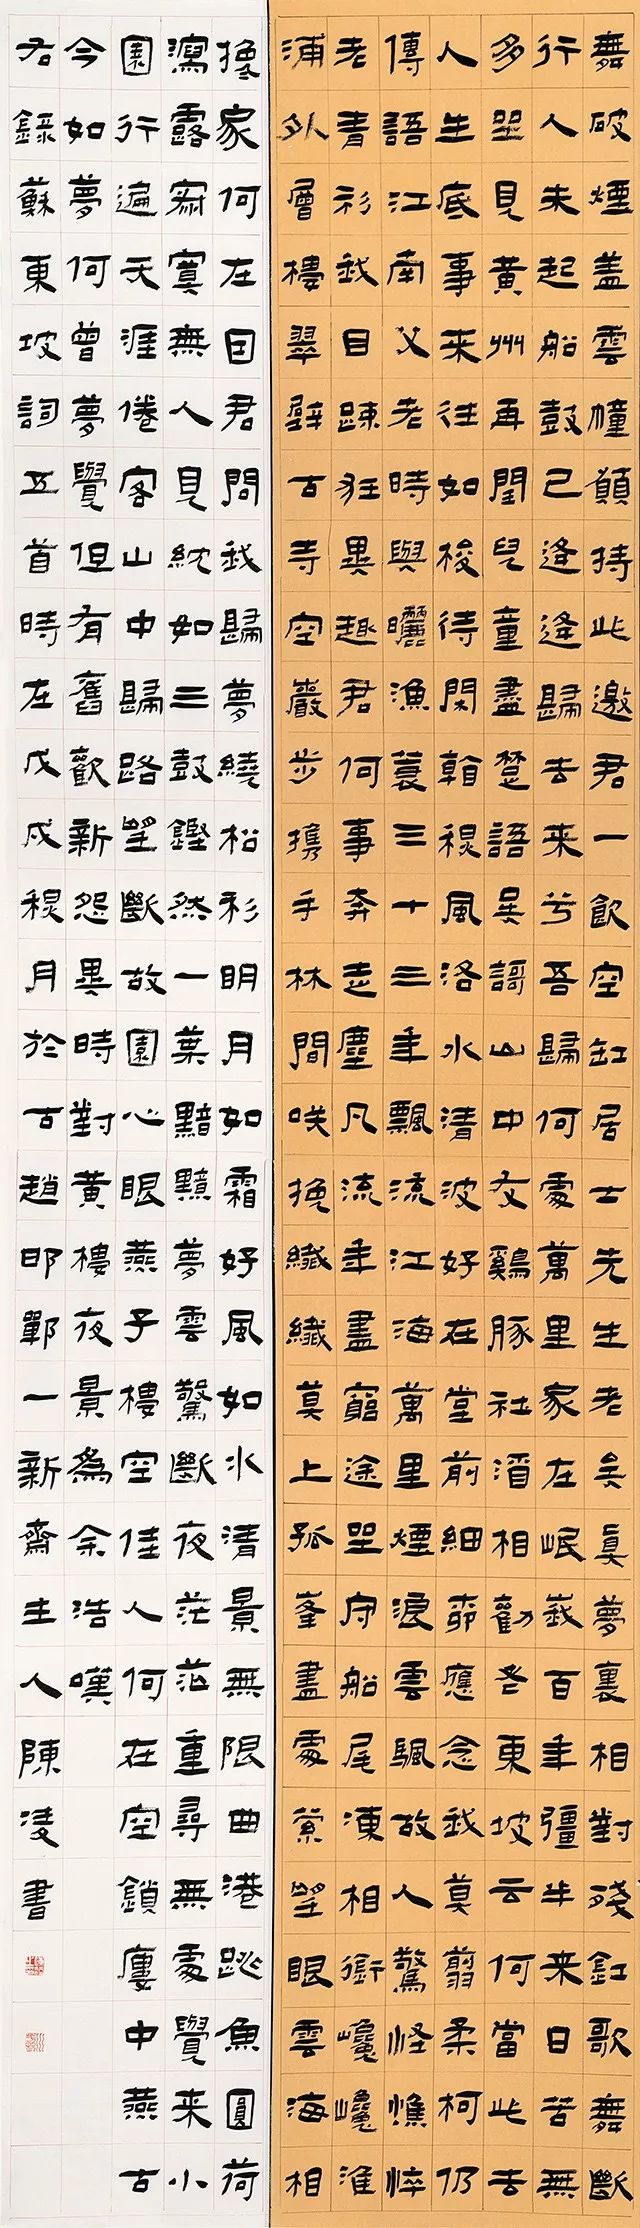 舞破煙盖雲幢願持此邀君一飲空缸居士先生老矣真夢裏相對殘釭歌舞斷
行人未起船鼓已逄逄歸去来兮吾歸何處萬里家在岷峩百年彊半来日苦無
多坐見黃州再閏兒童盡楚語吳謌山中友鷄豚社酒相勸老東坡云何當此去
人生底事来往如梭待閑看秋風洛水清波好在堂前細柳應念我莫翦柔柯仍
傳語江南父老時與曬漁蓑三十三年飄流江海萬里煙浪雲颿故人驚怪憔悴
老青衫我自踈狂異趣君何事奔走塵凡流年盡窮途坐守船尾凍相銜巉巉淮
浦外層樓翠壁古寺空巖步攜手林間笑挽纖纖莫上孤峯盡處縈望眼雲海相
攙家何在因君問我歸夢繞松杉明月如霜好風如水清景無限曲港跳魚圓荷
瀉露寂寞無人見紞如三鼓鏗然一葉黯黯夢雲驚斷夜茫茫重尋無處覺来小
園行遍天涯倦客山中歸路望斷故園心眼燕子樓空佳人何在空鎖廔中燕古
今如夢何曾夢覺但有舊歡新怨異時對黃樓夜景為余浩嘆
右錄蘇東坡詞五首時在戊戌秋月於古趙邯鄲一新齋主人陳凌書